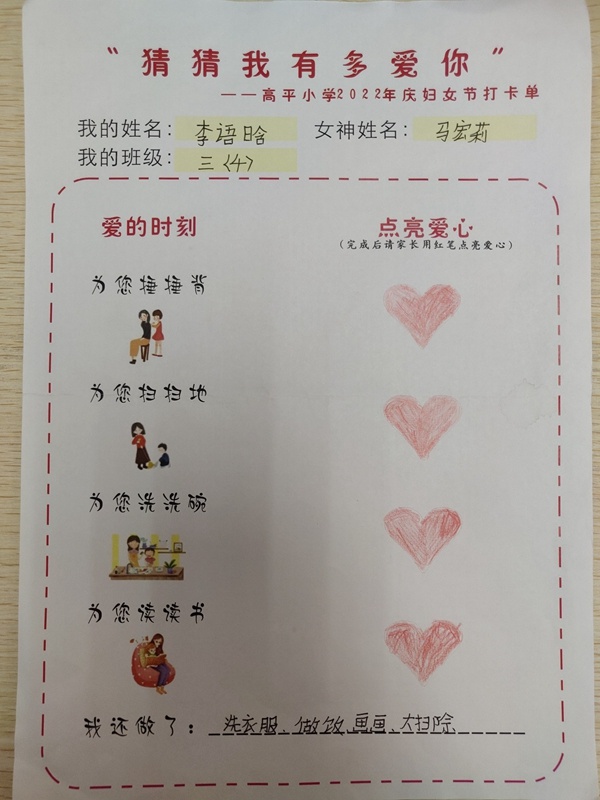 “猜猜我有多爱你”
——高平小学2022年庆妇女节打卡单
我的姓名：李语晗 女神姓名：马宏莉
我的班级：三〈4〉
爱的时刻 点亮爱心
（完成后请家长用红笔点亮爱心）
为您捶捶背
为您扫扫地
为您洗洗碗
为您读读书
我还做了：洗衣服、做饭、画画、大扫除